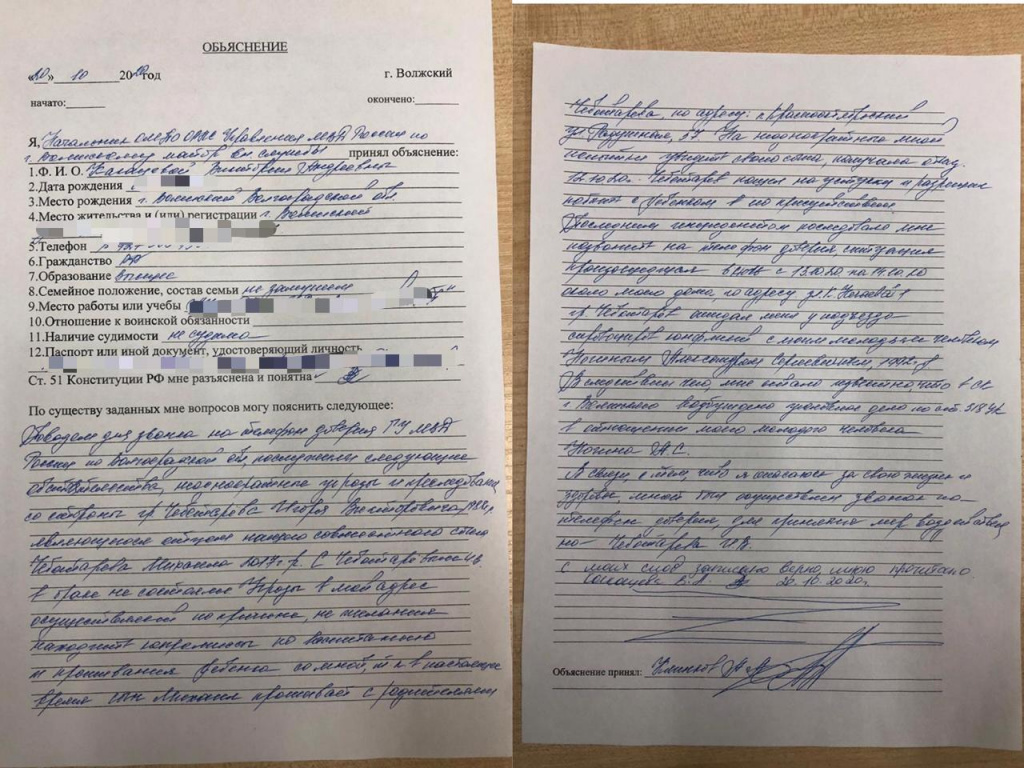 ОБЬЯСНЕНИЕ
«20» 10 2020год г. Волжский
начато: окончено:
Я, Начальник России по
г. Волжскому майор вн службы принял объяснение:
1.Ф. И. О. Виктории Андреевны
2.Дата рождения
3.Место рождения г. Волжский Волгоградской обл.
4.Место жительства и (или) регистрации г. Волжский
5.Телефон
6.Гражданство РФ
7.Образование высшее
8.Семейное положение, состав семьи не замужем
9.Место работы или учебы
10.Отношение к воинской обязанности
11.Наличие судимости не судима
12.Паспорт или иной документ, удостоверяющий личность
Ст. 51 Конституции РФ мне разъяснена и понятна
По существу заданных мне вопросов могу пояснить следующее:
Поводом для звонка на телефон доверия ГУ МВД
России по Волгоградской об, послужили следующие
обстоятельства, неоднократные угрозы и преследование
со стороны гр Чеботарева Игоря Викторовича,
являющегося отцом нашего совместного сына
Чеботарева Михаила 2017г.р. С Чеботаревым
в браке не состояли. Угрозы в мой адрес
осуществлялись по причине, не желания
находит компромисс по воспитанию
и проживания ребенка со мной, т к в настоящее
время сын Михаил проживает с родителями
Чеботарева, по адресу:
ул. На неоднократные мной
попытки увидит своего сына, получала отказ.
12.10.20г. Чеботарев пошел на уступки и разрешил
побыть с ребенком в его присутствии.
Последним инцидентом последовало мне
позвонит на телефон доверия, ситуация
произошедшая в ночь с 13.10.20 на 14.10.20
около моего дома, по адресу ул.
гр Чеботарев ожидал меня у подъезда
спровоцировав конфликт с моим молодым человеком
Александром Сергеевичем, 1992г.р
В следствии чего, мне стало известно, что в СК
г. Волжского возбуждено уголовное дело по ст. 318 УК
в отношении моего молодого человека
А.С.
В связи, с тем, что я опасаюсь за свою жизнь и
здоровье, мной был осуществлен звонок по
телефон доверия, для принятия мер воздействия
на Чеботарева И.В.
С моих слов записано верно, мною прочитано.
20.10.2020г.
Объяснение принял: